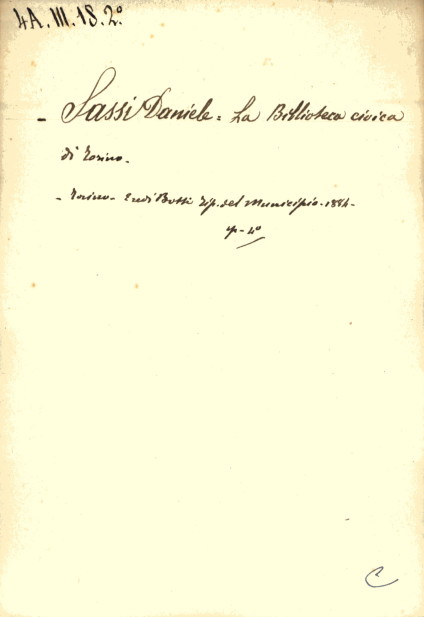 4A.III.18.2º
- Sassi Daniele = La Biblioteca civica
di Torino -
- Torino - Eredi Botti Tip. del Municipio - 1884 -
4º
C